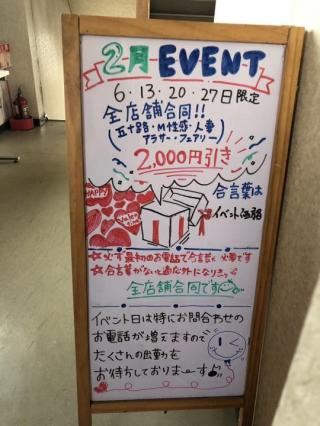 2月 EVENT
6・13・20・27日限定
全店舗合同!!
(五十路・M性感・人妻
アラサー・フェアリー)
2,000円引き
合言葉は
イベント価格
HAPPY
☆必ず最初のお電話で合言葉が必要です
☆合言葉がないと適応外になります
全店舗合同です
イベント日は特にお問合わせの
お電話が増えますので
たくさんの出勤を
お待ちしておりまーす♪